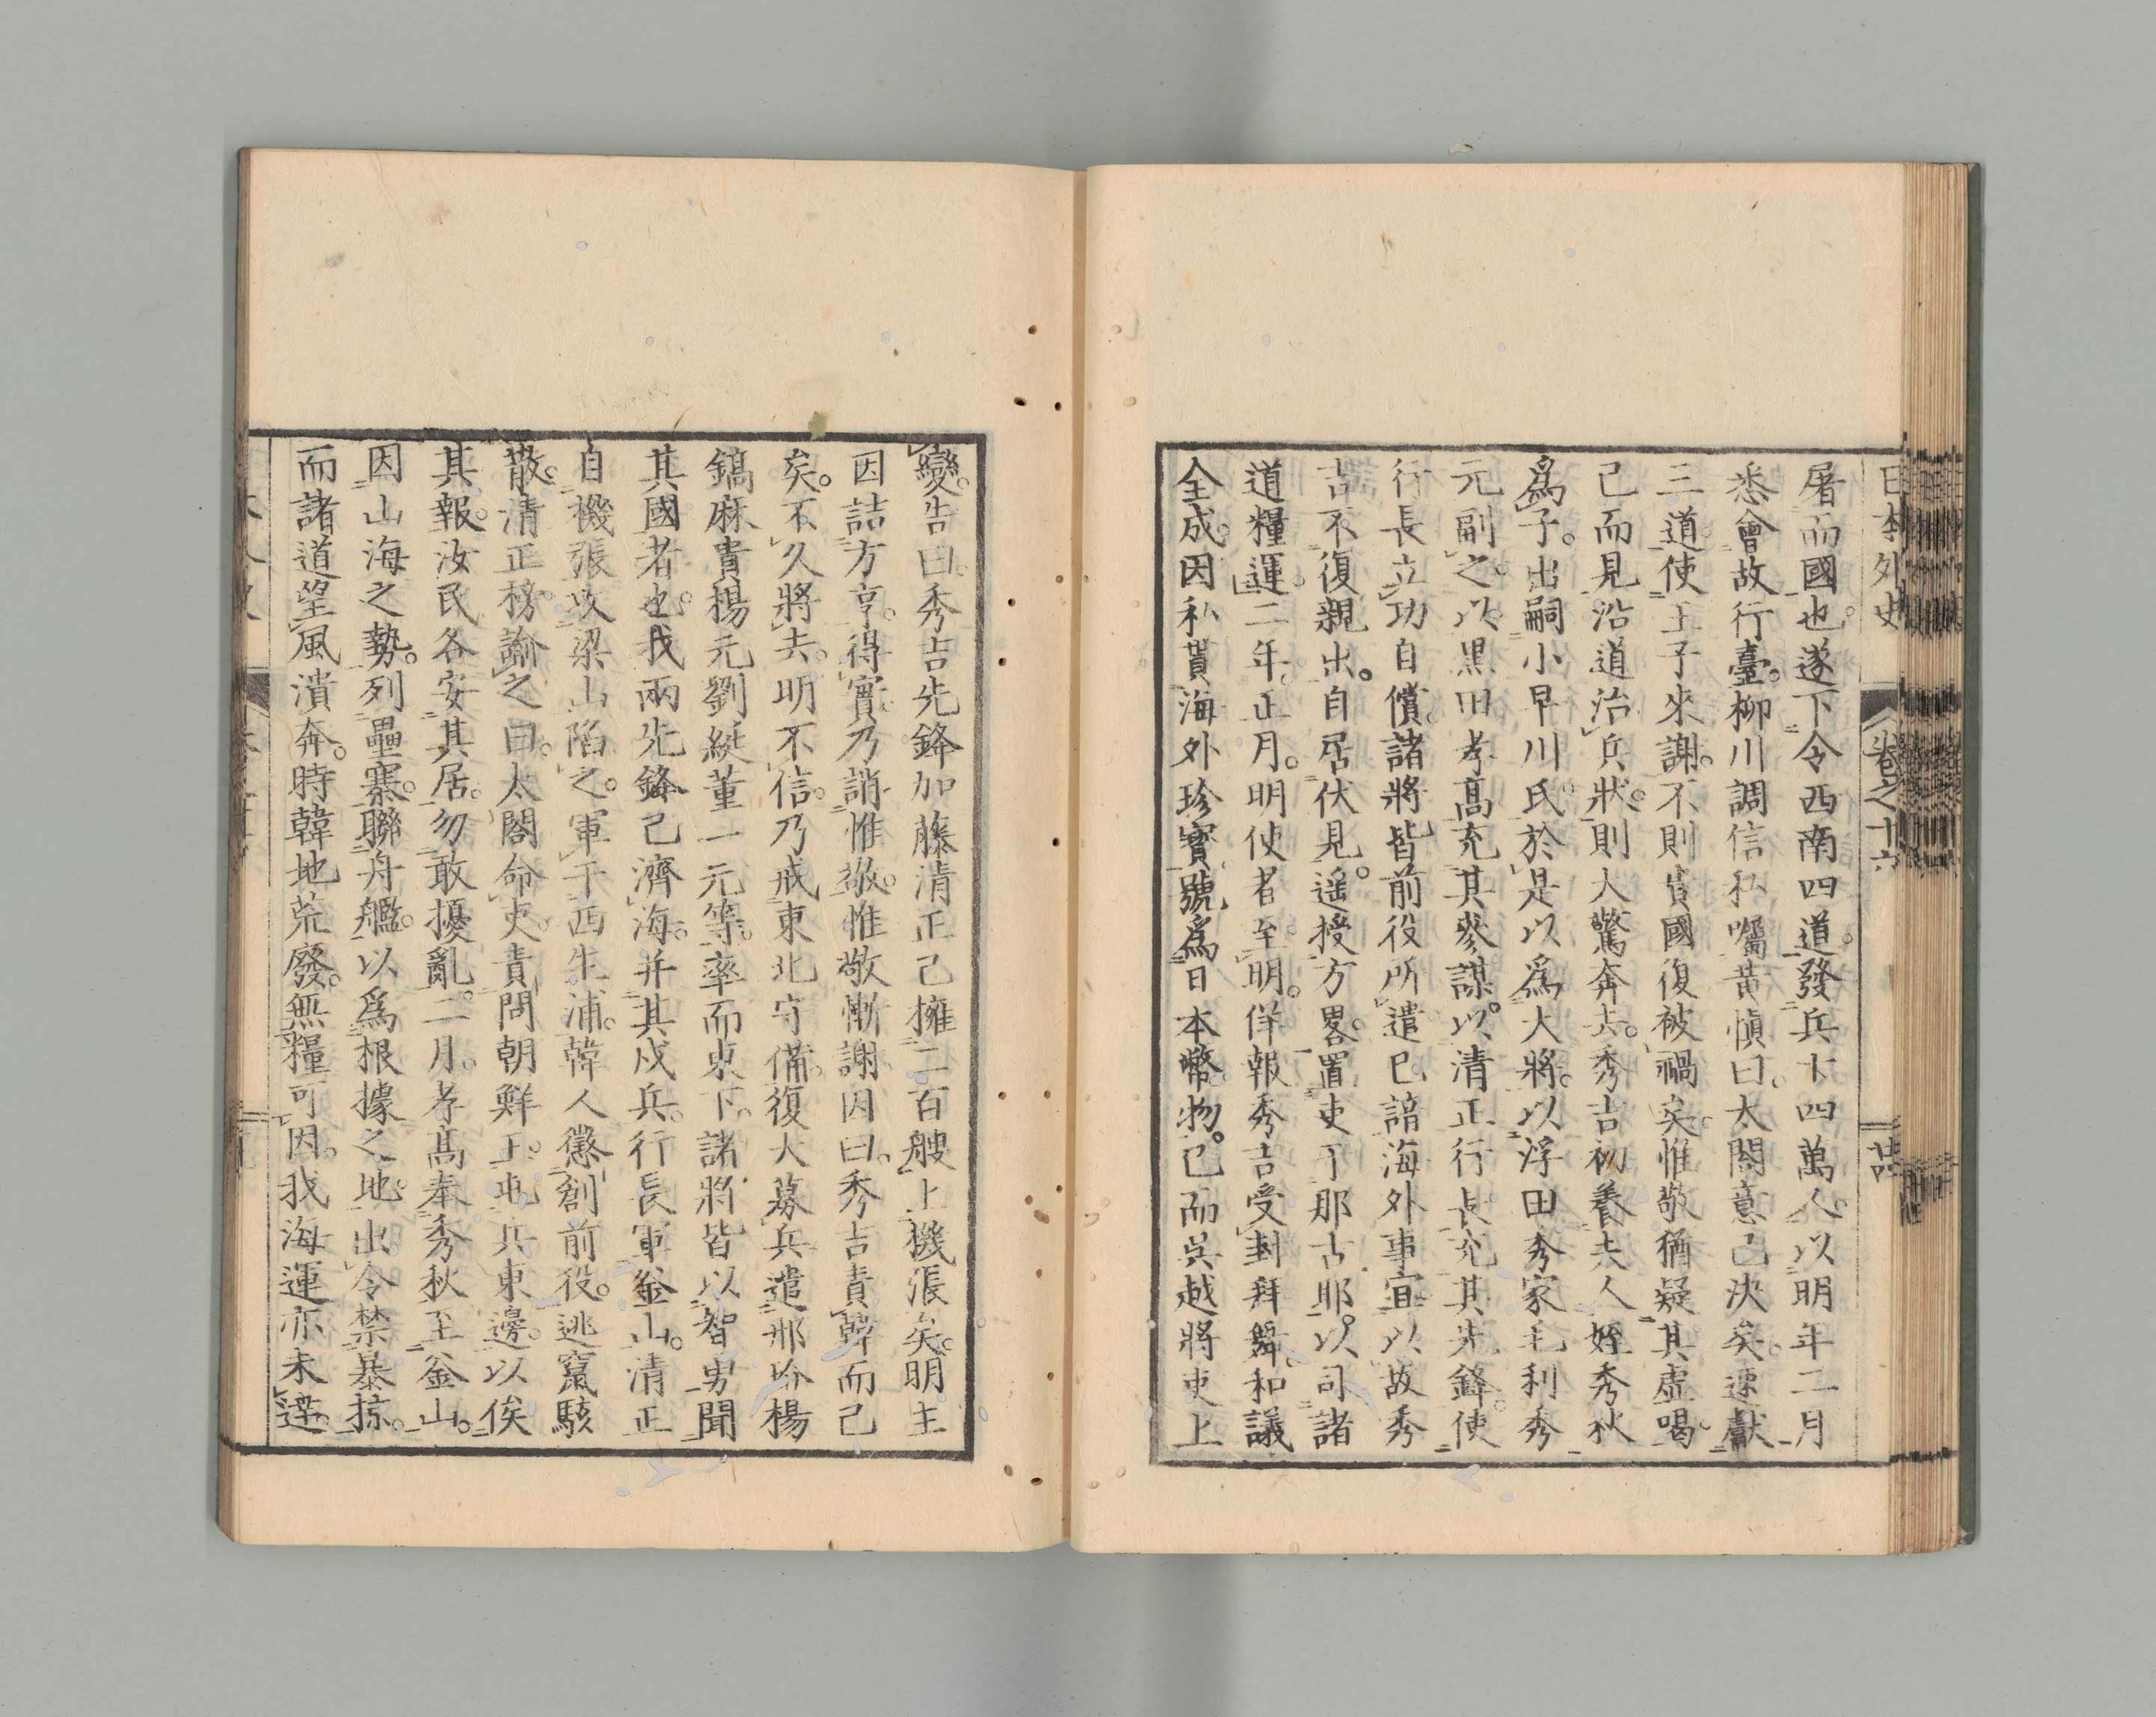 日本外史 卷之十六 廿四
屠而國也。遂下令西南四道。發兵十四萬人。以明年二月
悉會故行臺。柳川調信私囑黄愼曰。太閤意已決矣。速獻
三道。使王子來謝。不則貴國復被禍矣。惟敬猶疑其虛喝。
已而見沿道治兵狀。則大驚奔去。秀吉初養夫人姪秀秋
爲子。出嗣小早川氏。於是以爲大將。以浮田秀家毛利秀
元副之。以黒田孝高充其參謀。以清正行長充其先鋒。使
行長立功自償。諸將皆前役所遣。已諳海外事宜。以故秀
吉不復親出。自居伏見。遥授方畧。置吏于那古耶。以司諸
道糧運。二年。正月。明使者至明。佯報秀吉受封拜舞。和議
全成。因私貿海外珍寳。號爲日本幣物。已而吳越將吏上
變。告曰。秀吉先鋒加藤清正已擁二百艘上機張矣。明主
因詰方亨。得實。乃誚惟敬。惟敬慚謝因曰。秀吉責韓而已
矣。不久將去。明不信。乃戒東北守備。復大募兵遣邢玠楊
鎬麻貴楊元劉綎董一元等。率而東下。諸將皆以智勇聞
其國者也。我兩先鋒已濟海。并其戍兵。行長軍釜山。清正
自機張攻梁山陷之。軍于西生浦。韓人懲創前役。逃竄駭
散。清正榜諭之曰。太閤命吏。責問朝鮮王。屯兵東邊。以俟
其報。汝民各安其居。勿敢擾亂。二月。孝高奉秀秋至釜山。
因山海之勢。列壘寨。聯舟艦。以爲根據之地。出令禁暴掠。
而諸道望風潰奔。時韓地荒廢。無糧可因。我海運亦未達。